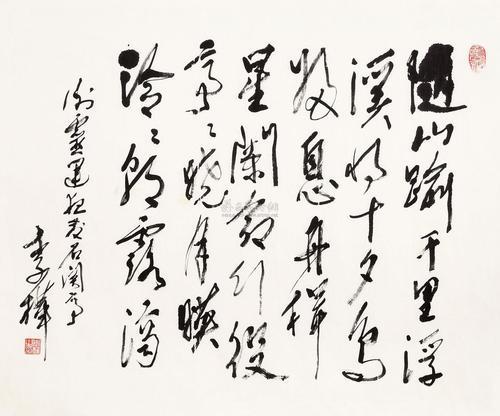 隨山踰千里浮
溪將十夕鳥
歸息舟楫
星闌命行役
亭〻曉月映
泠〻朝露滴
謝靈運夜發石關亭
李鐸